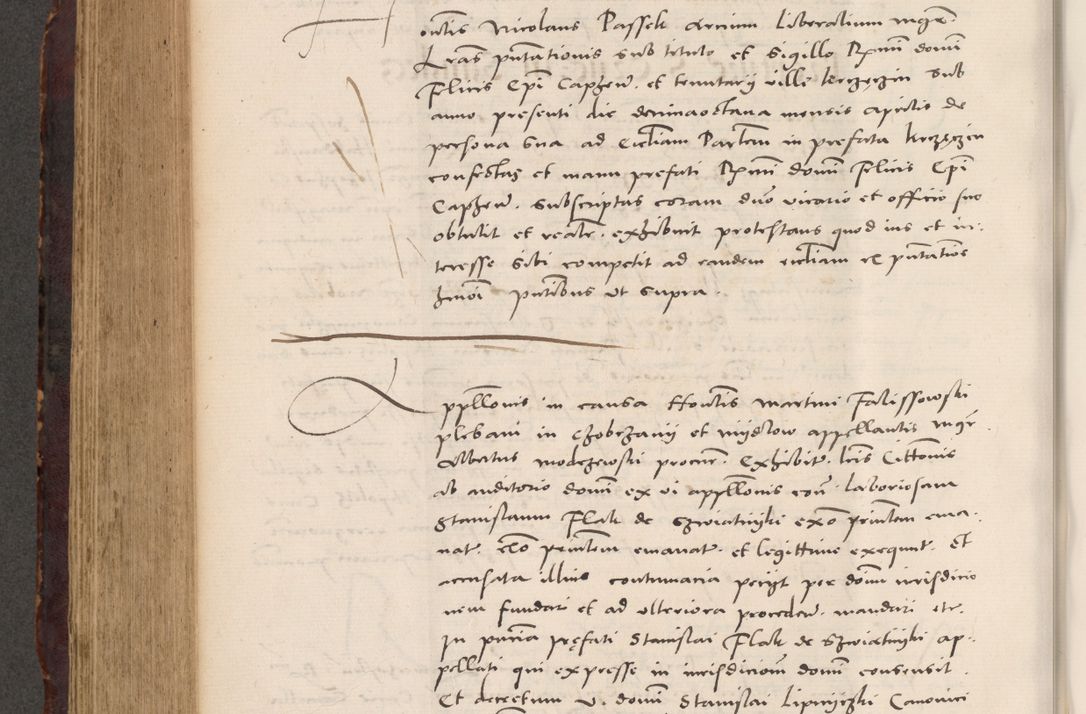 ountis Nicolaus Passek Arcium Liberalium mgr.
Lras putationis sub titulo et Sigillo Rxmi domi
Felicis Epi Capheu. et tenutarij ville krczęczin sub
anno presenti die decimaoctava mensis aprilis de
persona sua ad Eccliam Partem in prefata krczęczin
confectas et manu prefati Rxmi domi Felicis Epi
Capheu. subscriptas coram duo vicario et officio suo
obtulit et realr. exhibuit protestans quod ius et in-
teresse sibi competit ad eandem eccliam ex putatiois
hmoi putibus ut supra.
Appllonis in causa Hontis martini Falissowski
plebani in Czobrzanij et appellantis mgr
Albertus modrzewski procur. Exhibit. lris Cittonis
ab auditorio domi ex vi appllonis con. Laboriosam
Stanislaum Flak de Szwiatnijki exo printem ema-
nat. elo printem emanat. et legittime exequut. Et
accusata illius contumacia petijt per domi iurisdictio
nem fundari et ad ulteriora proceden. mandari etc.
In pntia pręfati Stanislai Flak de Szwiatnijki ap-
pellati qui expresse in iurisdictiom domi consensit.
Et decretum V. domi Stanislai Lipnijczki Canonici